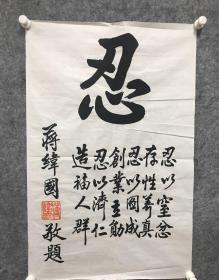 忍
忍以窒忿
存性養真
忍以圖成
創業立勛
忍以濟仁
造福人群
蔣緯國 敬題